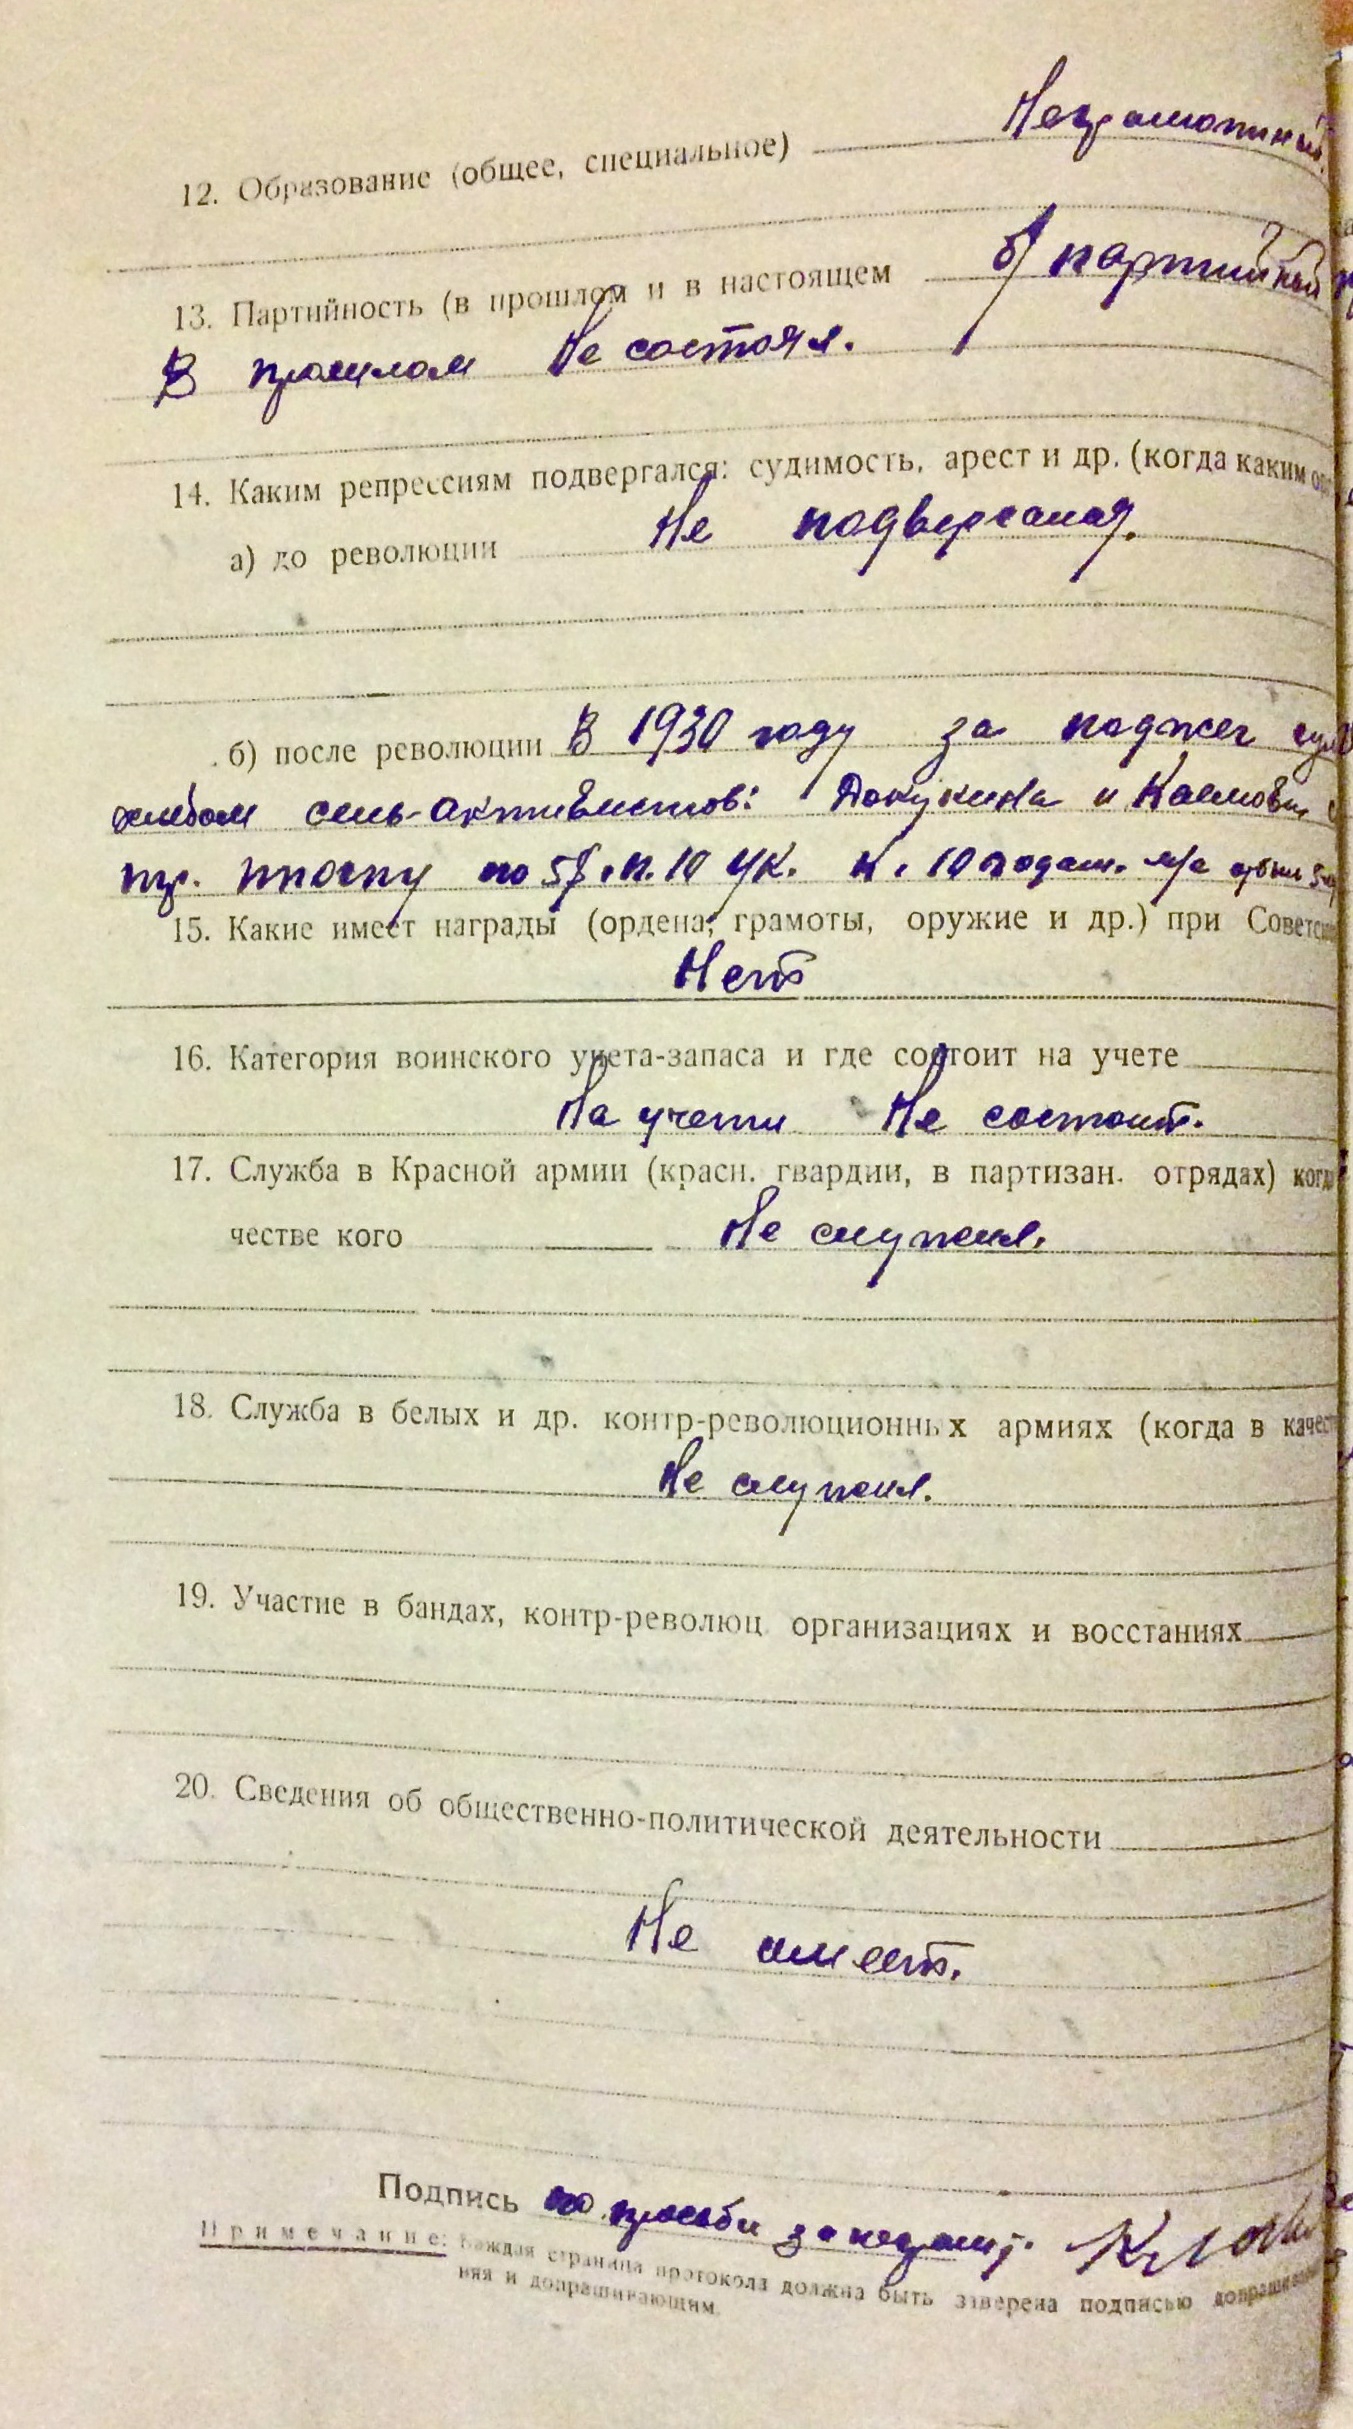 Неграмотный
12. Образование (общее, специальное)
13. Партийность (в прошлом и в настоящем б/партийный
В прошлом не состоял.
14. Каким репрессиям подвергался: судимость, арест и др. (когда каким
а) до революции Не подвергался.
б) после революции В 1930 году за поджег
хлебом сель-активистов: Докукина и
по 58.п.10 УК. к. 10 годам.
15. Какие имеет награды (ордена, грамоты, оружие и др.) при
Нет
16. Категория воинского учета-запаса и где состоит на учете
На учети не состоит.
17. Служба в Красной армии (красн. гвардии, в партизан. отрядах)
честве кого Не служил.
18. Служба в белых и др. контр-революционных армиях (когда в
Не служил.
19. Участие в бандах, контр-революц. организациях и восстаниях
20. Сведения об общественно-политической деятельности
Не имеет.
Подпись по прозьби за неграмт.
Примечание: Каждая страница протокола должна быть заверена подписью
ния и допрашивающим.